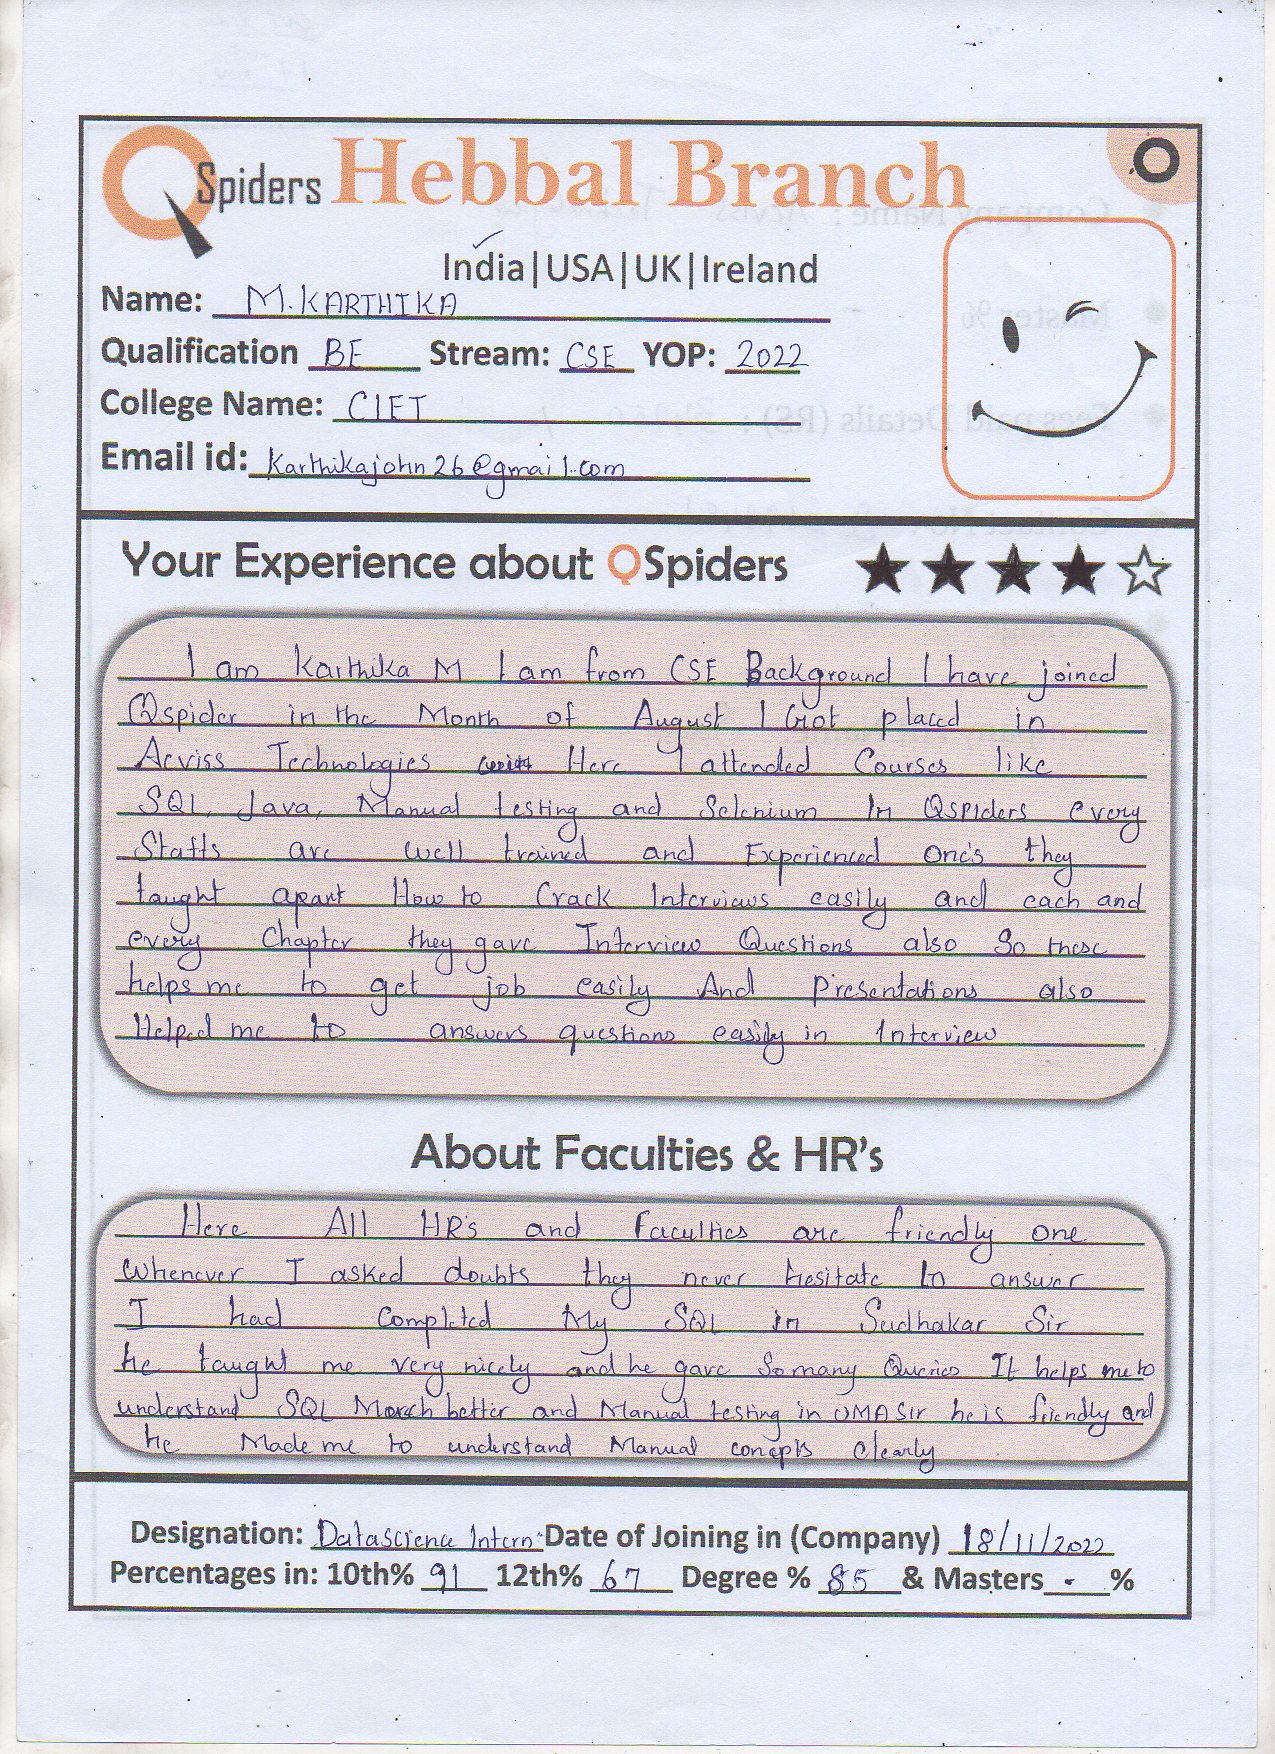 QSpiders Hebbal Branch
India|USA|UK|Ireland
Name: M.KARTHIKA
Qualification BE Stream: CSE YOP: 2022
College Name: CIET
Email id: karthikajohn26@gmail.com
Your Experience about QSpiders
I am Karthika M I am from CSE Background I have joined
Qspider in the Month of August I Got placed in
Acviss Technologies Here I attended Courses like
SQL, Java, Manual testing and Selenium In Qspiders every
Staffs are well trained and Experienced one's they
taught apart How to Crack Interviews easily and each and
every Chapter they gave Interview Questions also So these
helps me to get job easily And Presentations also
Helped me to answers questions easily in Interview
About Faculties & HR's
Here All HR's and Faculties are friendly one
Whenever I asked doubts they never hesitate to answer
I had Completed My SQL in Sudhakar Sir
he taught me very nicely and he gave So many Queries It helps me to
understand SQL Much better and Manual testing in UMA Sir he is friendly and
he Made me to understand Manual concepts clearly
Designation: Datascience Intern Date of Joining in (Company) 18/11/2022
Percentages in: 10th% 91 12th% 67 Degree % 85 & Masters - %